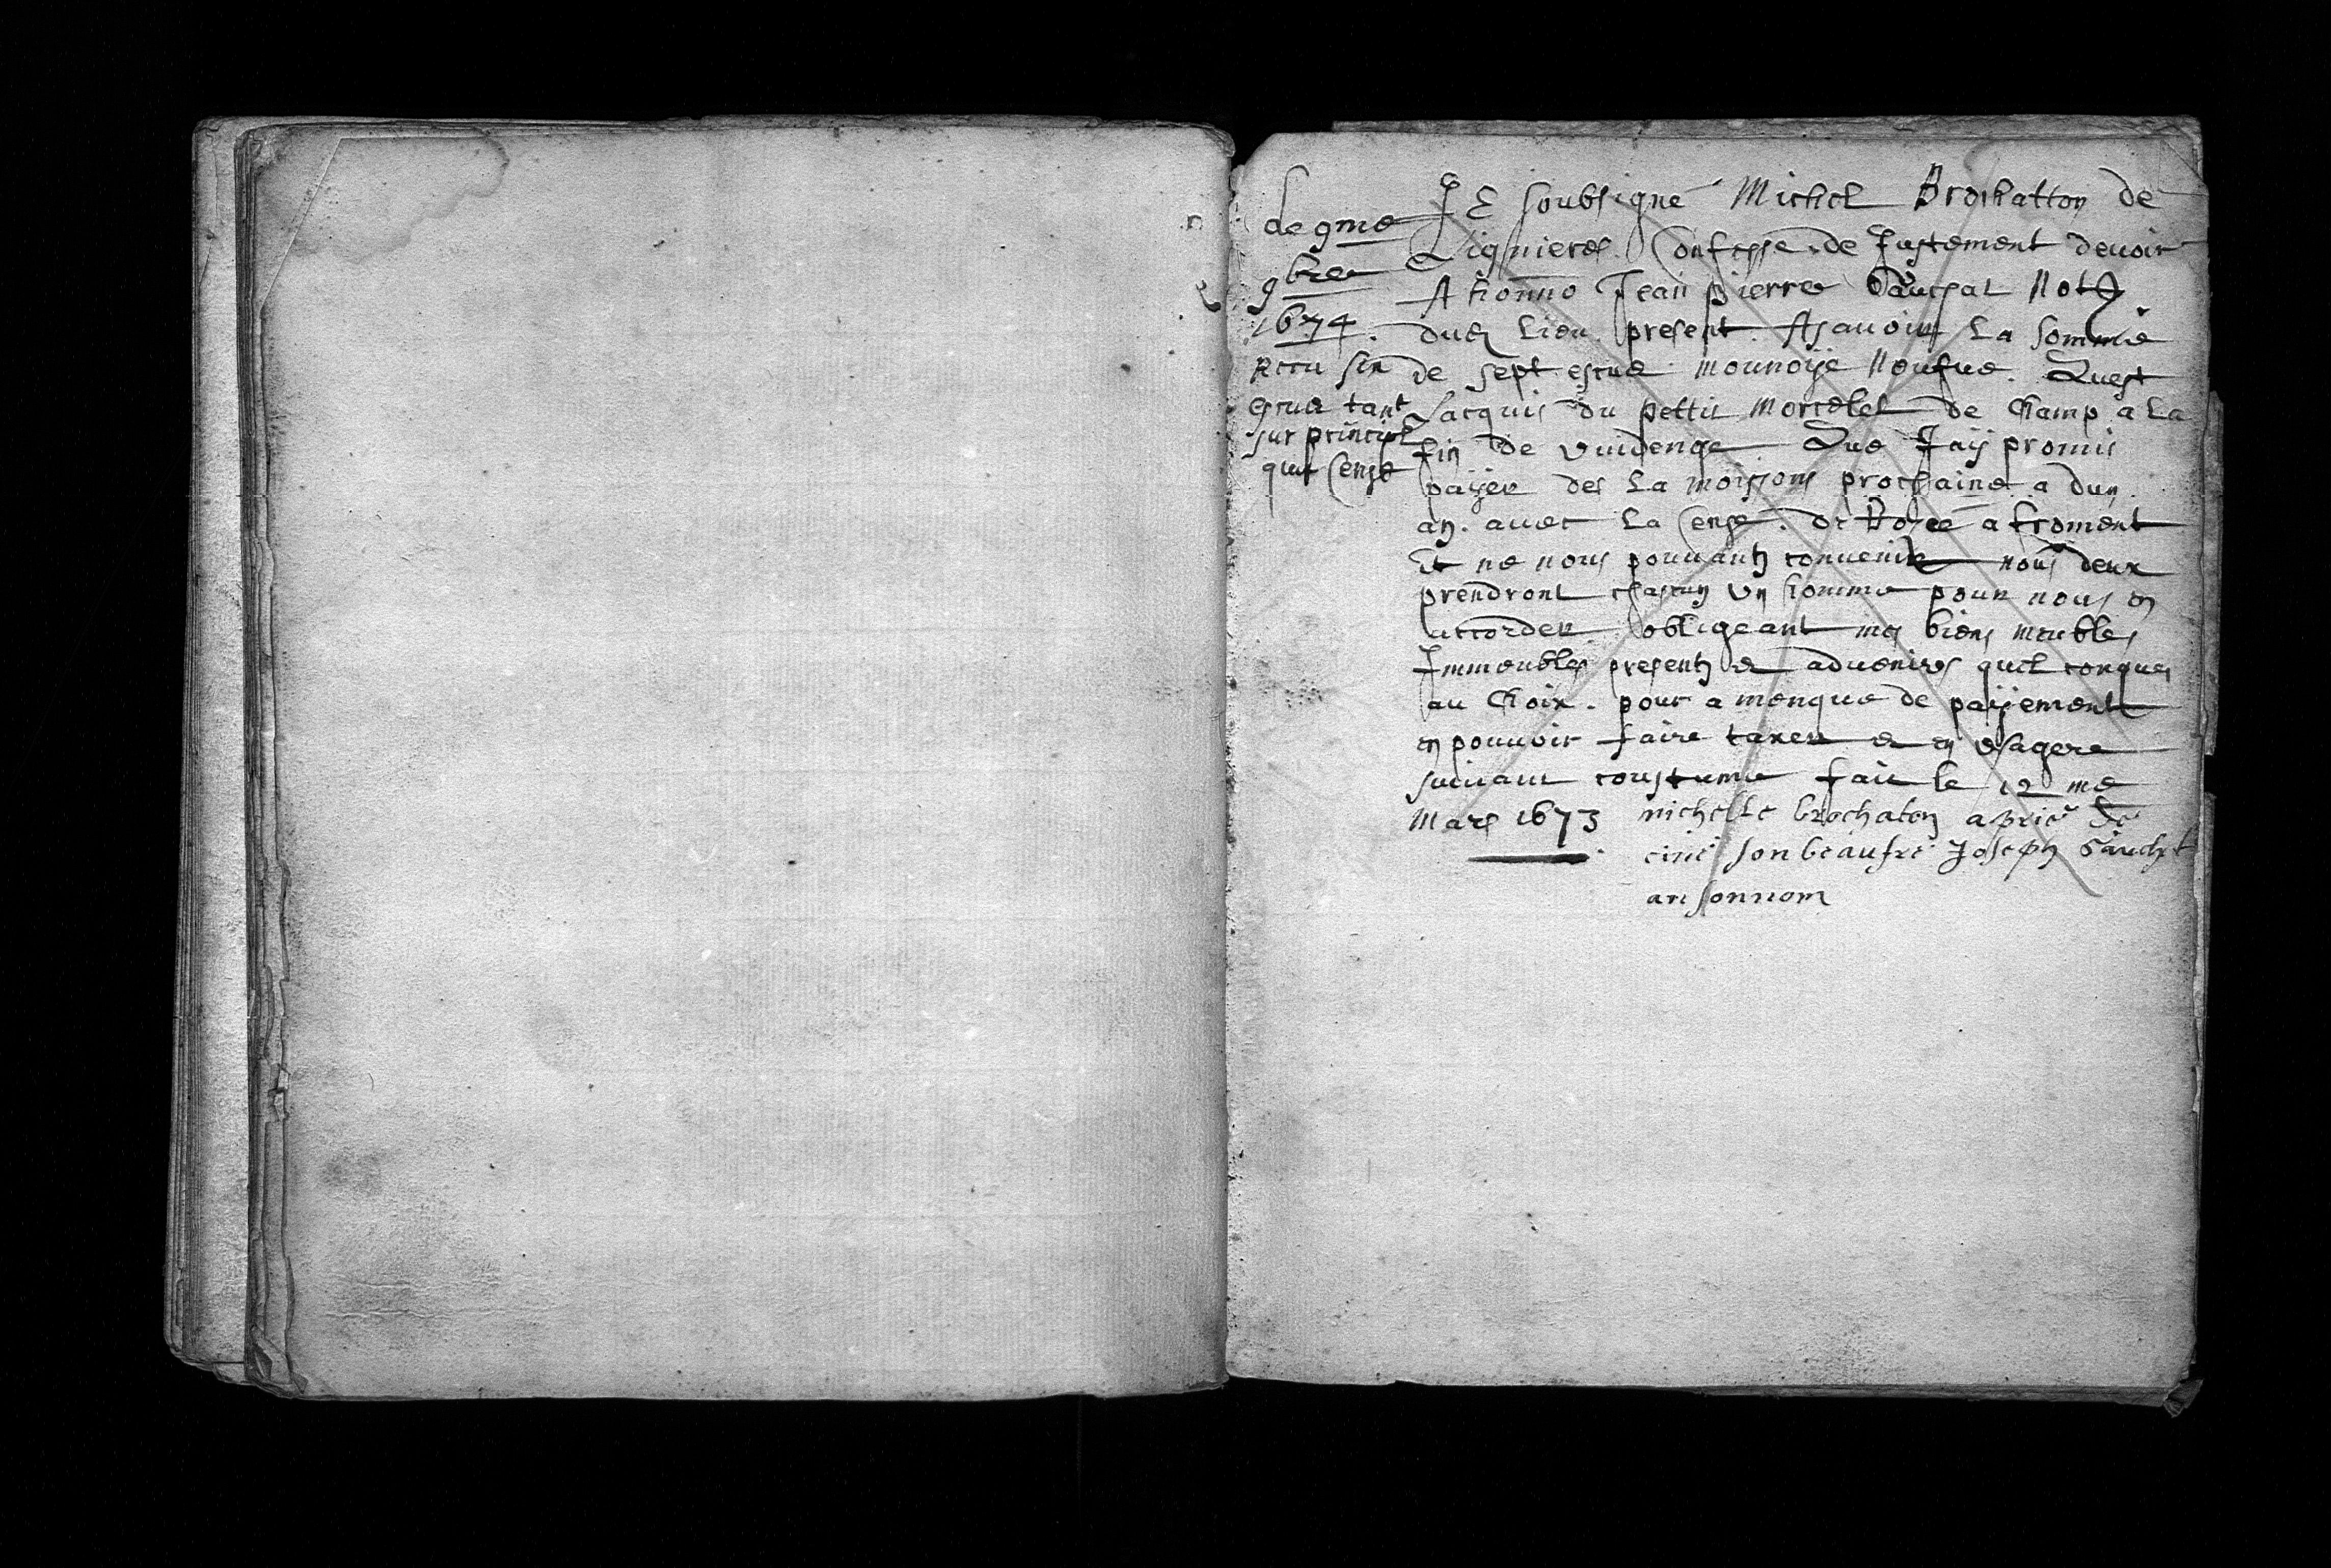 Le 9me
9bre
1674.
Receu six
escus tant
sur principl
que cense
JE soubsigné Michel Brochatton de
Lignieres. Confesse de Justement devoir
A honno Jean pierre Sauchat Nott
dud Lieu present. Asavoir La somme
de sept escus monnoije Neufve. Quest
Lacquis du pettit morcelet de champ a La
fin de vuidenge Que Jaij promis
paijer des La moissons prochaine a dun
an. avec La cense. de froment
Et ne nous pouvants convenir nous deux
prendront chascun un homme pour nous en
accorder. obligeant mes biens meubles
Immeubles presents et advenires quelconques
au Choix. pour a menque de paijement
en pouvoir faire taxer et en usagera
suivant coustume fait le 12 me
Mars 1673 michelle brochaton a prié de
cine son beaufre Joseph Sauchet
an son nom